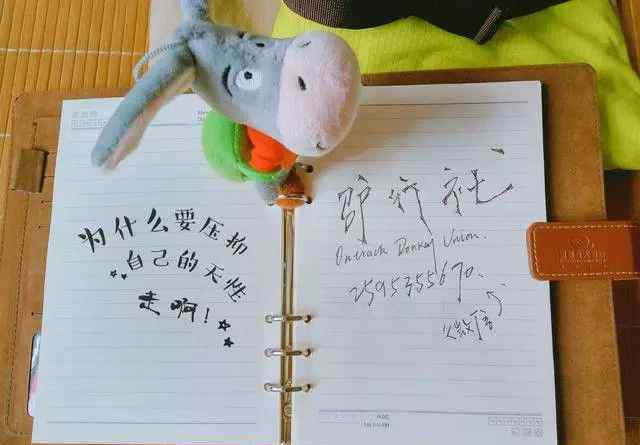 为什么要压抑
自己的天性
走啊!
驴行社
Outrack Donkey Union.
2595355670.
微信